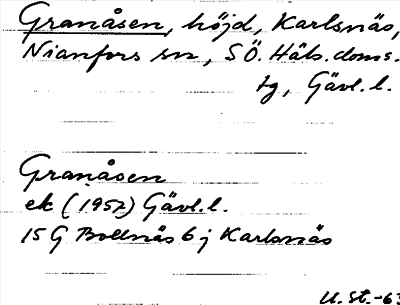 Granåsen, höjd, Karlsnäs,
Nianfors sn, SÖ. Häls. doms.
tg, Gävl. l.
Granåsen
ek (1957) Gävl. l.
15 G Bollnäs 6 j Karlsnäs
U. St. -63